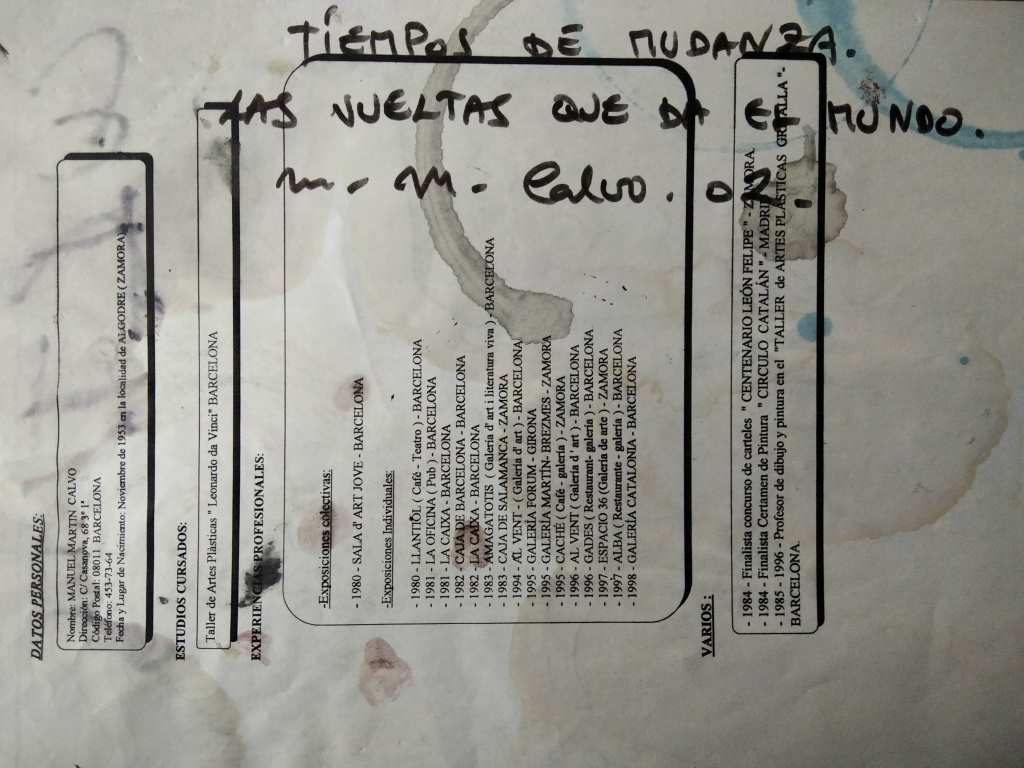 TIEMPOS DE MUDANZA.
LAS VUELTAS QUE DA EL MUNDO.
m. M. Calvo. 02.
DATOS PERSONALES:
Nombre: MANUEL MARTIN CALVO
Dirección: C/ Casanova, 68 3º 1ª
Código Postal: 08011 BARCELONA
Teléfono: 453-73-64
Fecha y Lugar de Nacimiento: Noviembre de 1953 en la localidad de ALGODRE ( ZAMORA)
ESTUDIOS CURSADOS:
Taller de Artes Plásticas " Leonardo da Vinci" BARCELONA
EXPERIENCIAS PROFESIONALES:
-Exposiciones colectivas:
- 1980 - SALA d' ART JOVE - BARCELONA
-Exposiciones individuales:
- 1980 - LLANTIOL ( Café - Teatro ) - BARCELONA
- 1981 - LA OFICINA ( Pub ) - BARCELONA
- 1981 - LA CAIXA - BARCELONA
- 1982 - CAIXA DE BARCELONA - BARCELONA
- 1982 - LA CAIXA - BARCELONA
- 1983 - AMAGATOTIS ( Galeria d' art i literatura viva ) - BARCELONA
- 1983 - CAJA DE SALAMANCA - ZAMORA
- 1994 - AL VENT - ( Galeria d' art ) - BARCELONA
- 1995 - GALERÍA FORUM - GIRONA
- 1995 - GALERÍA MARTÍN- BREZMES - ZAMORA
- 1995 - CACHÉ ( Café - galería ) - ZAMORA
- 1996 - AL VENT ( Galeria d ' art ) - BARCELONA
- 1996 - GADES ( Restaurant- galería ) - BARCELONA
- 1997 - ESPACIO 36 (Galería de arte ) - ZAMORA
- 1997 - ALBA ( Restaurante - galería ) - BARCELONA
- 1998 - GALERÍA CATALONIA - BARCELONA
VARIOS :
- 1984 - Finalista concurso de carteles " CENTENARIO LEÓN FELIPE " - ZAMORA.
- 1984 - Finalista Certamen de Pintura " CIRCULO CATALÁN " - MADRID
- 1985 - 1996 - Profesor de dibujo y pintura en el "TALLER de ARTES PLÁSTICAS GRALLA "-
BARCELONA.